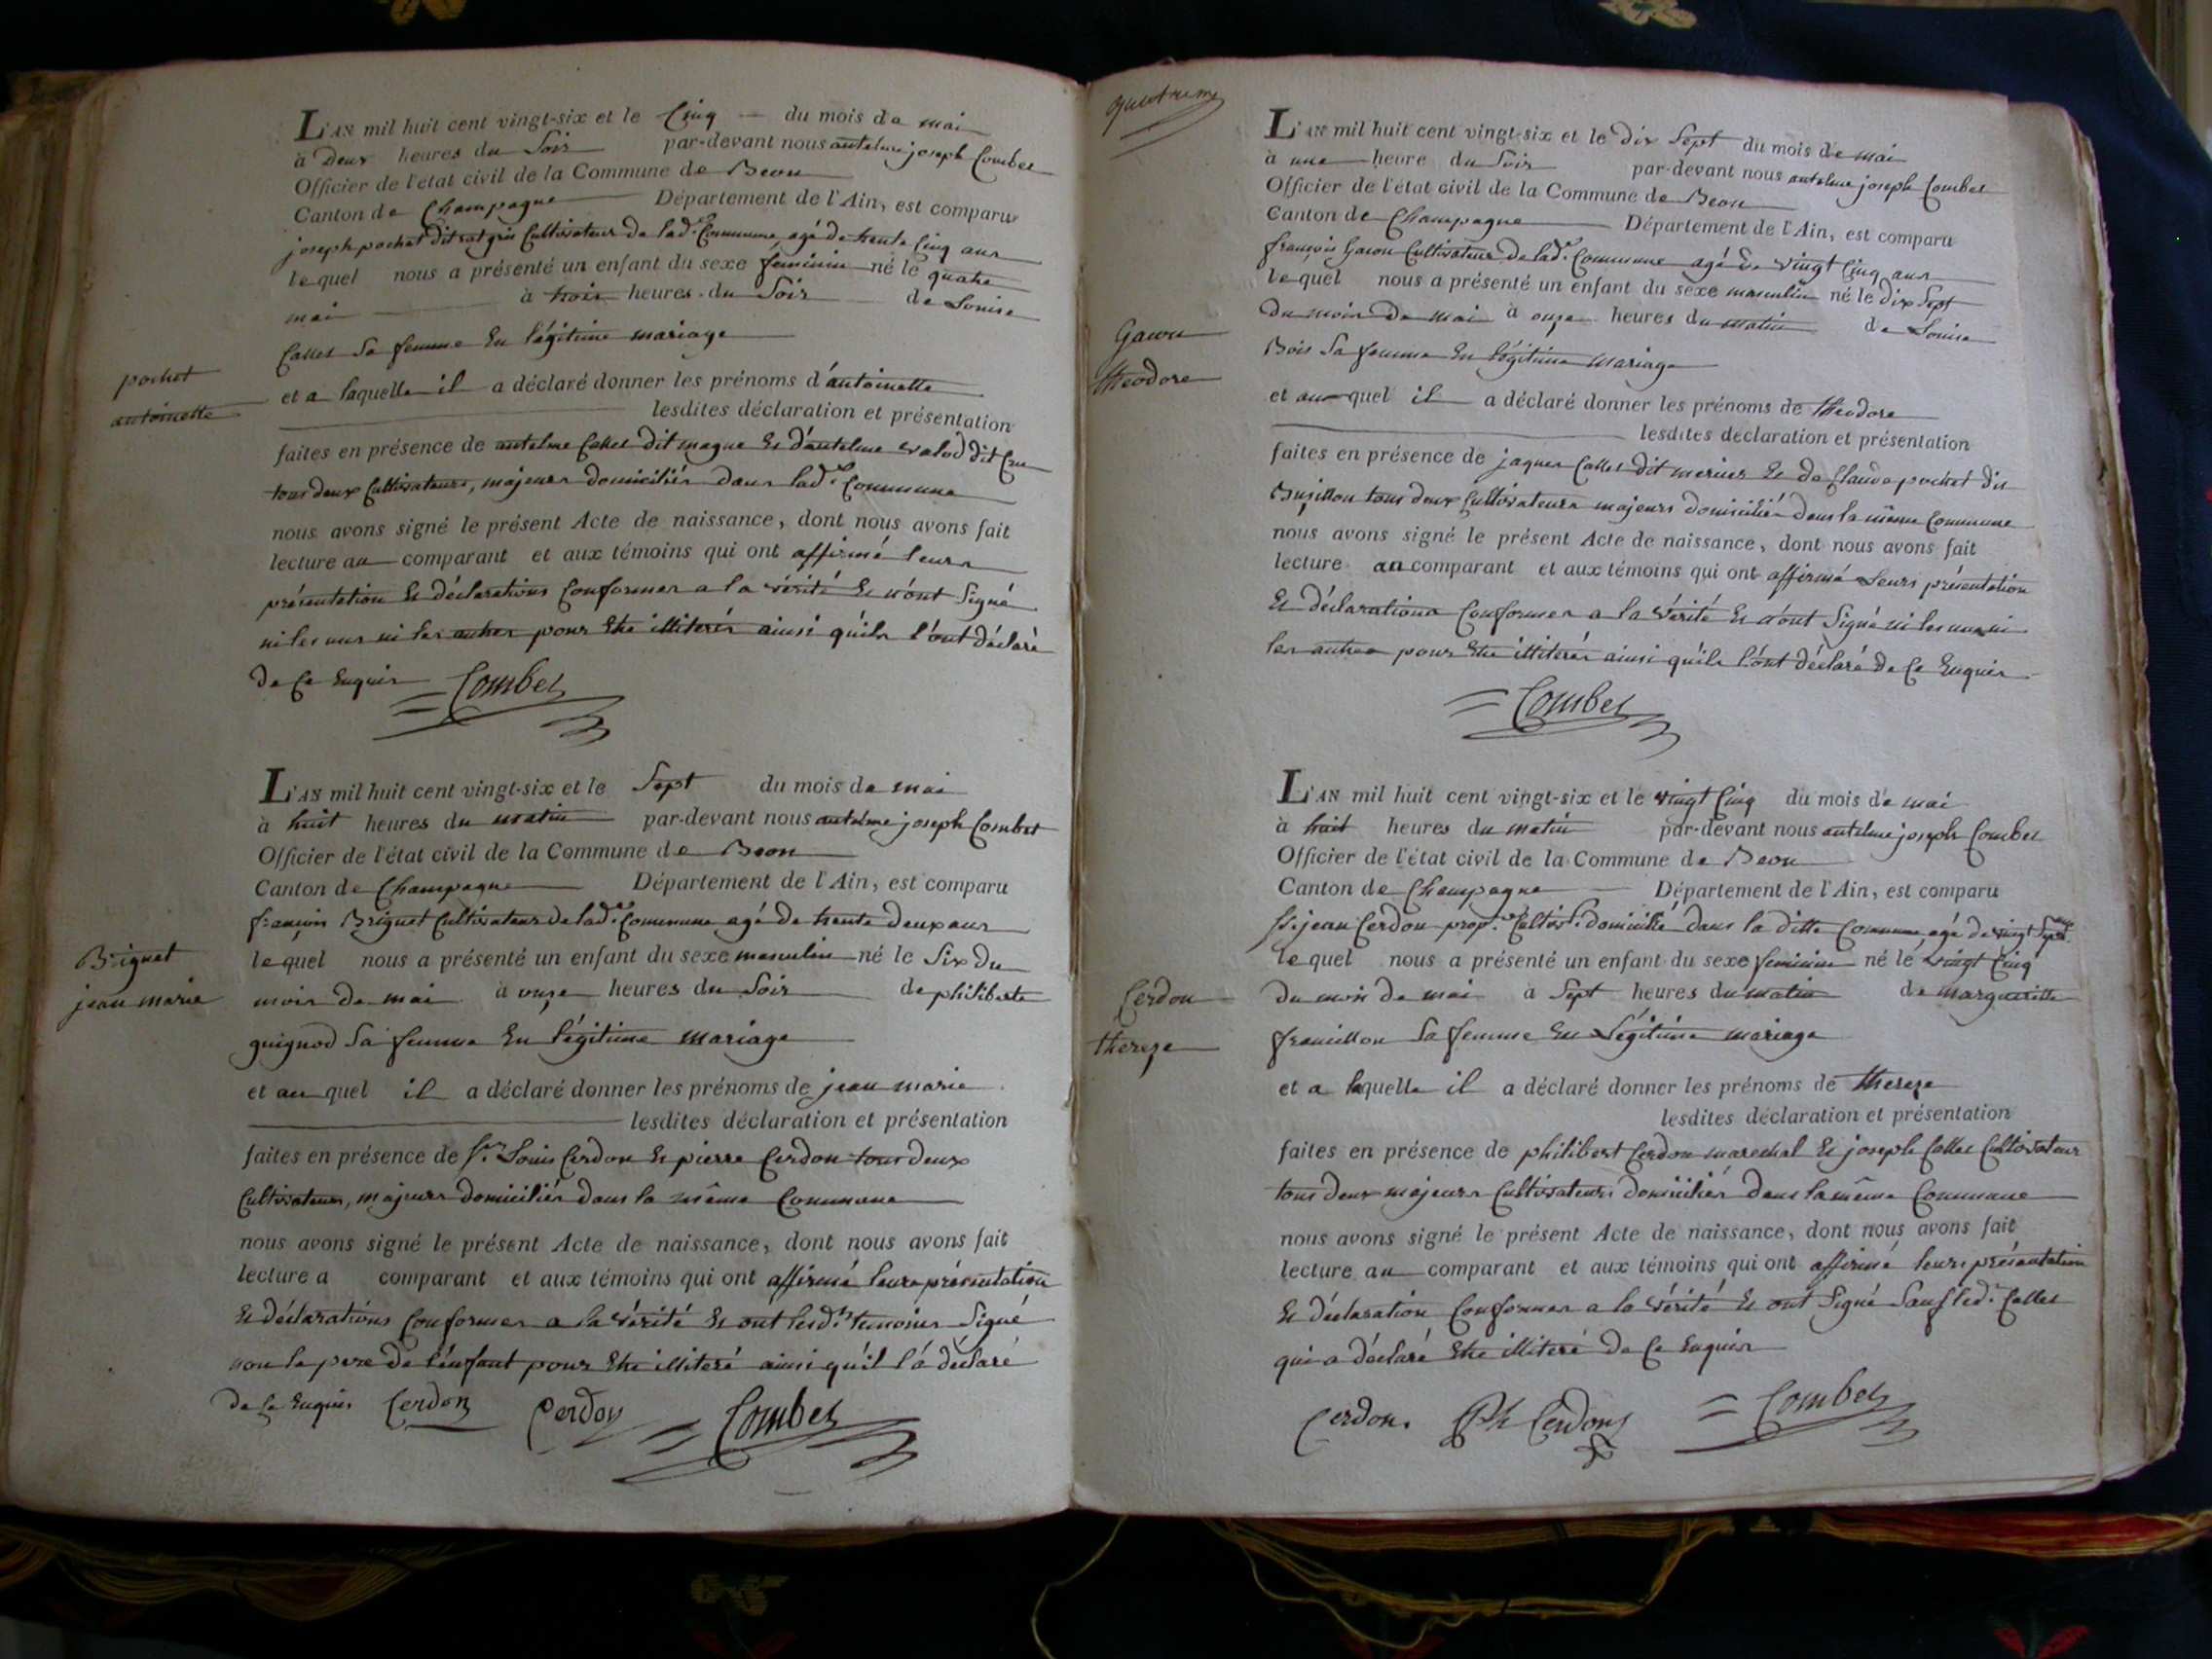 L'AN mil huit cent vingt-six et le Cinq du mois de mai
à Deux heures du Soir par-devant nous antelme joseph Combet
Officier de l'état civil de la Commune de Beon
Canton de Champagne Département de l'Ain, est comparu
joseph pochet dit Cultivateur de lad.e Commune, agé de trente Cinq ans
lequel nous a présenté un enfant du sexe féminin né le quatre
mai à trois heures du Soir de Louise
Callet Sa femme En légitime mariage
pochet
antoinette
et a laquelle il a déclaré donner les prénoms d'antoinette
lesdites déclaration et présentation
faites en présence de antelme Callet dit magne Et d'antelme valod dit
tous deux Cultivateurs, majeurs domiciliés dans lad.e Commune
nous avons signé le présent Acte de naissance, dont nous avons fait
lecture au comparant et aux témoins qui ont affirmé leurs
présentation Et déclarations Conformes a la vérité Et n'ont Signé
ni les uns ni les autres pour Etre illiterés ainsi qu'ils l'ont déclaré
de Ce Enquis Combet
L'AN mil huit cent vingt-six et le Sept du mois de mai
à huit heures du matin par-devant nous antelme joseph Combet
Officier de l'état civil de la Commune de Beon
Canton de Champagne Département de l'Ain, est comparu
françois Briguet Cultivateur de lad.e Commune agé de trente deux ans
Briguet
jean marie
lequel nous a présenté un enfant du sexe masculin né le Six du
mois de mai à onze heures du Soir de philiberte
guignod Sa femme En légitime mariage
et au quel il a déclaré donner les prénoms de jean marie
lesdites déclaration et présentation
faites en présence de Sr. Louis Cerdon Et pierre Cerdon tous deux
Cultivateurs, majeurs domiciliés dans la même Commune
nous avons signé le présent Acte de naissance, dont nous avons fait
lecture a comparant et aux témoins qui ont affirmé leurs présentation
Et déclarations Conformes a la vérité Et ont lesd.ts temoins Signé
non le pere de l'enfant pour Etre illiteré ainsi qu'il l'a déclaré
de Ce Enquis Cerdon Cerdon Combet
L'AN mil huit cent vingt-six et le dix Sept du mois de mai
à une heure du Soir par-devant nous antelme joseph Combet
Officier de l'état civil de la Commune de Beon
Canton de Champagne Département de l'Ain, est comparu
françois Gacon Cultivateur de lad.e Commune agé de vingt Cinq ans
lequel nous a présenté un enfant du sexe masculin né le dix Sept
du mois de mai à onze heures du matin de Louise
Gacon
theodore
Bois Sa femme En légitime mariage
et au quel il a déclaré donner les prénoms de theodore
lesdites déclaration et présentation
faites en présence de jaques Callet dit mercier Et de Claude pochet dit
Buzillon tous deux Cultivateurs majeurs domiciliés dans la même Commune
nous avons signé le présent Acte de naissance, dont nous avons fait
lecture au comparant et aux témoins qui ont affirmé Leurs présentation
Et déclarations Conformes a la vérité Et n'ont Signé ni les uns ni
les autres pour Etre illiterés ainsi qu'ils l'ont déclaré de Ce Enquis
Combet
L'AN mil huit cent vingt-six et le vingt Cinq du mois de mai
à huit heures du matin par-devant nous antelme joseph Combet
Officier de l'état civil de la Commune de Beon
Canton de Champagne Département de l'Ain, est comparu
Sr. jean Cerdon prop.re Cultiv.r domicilié dans la ditte Commune, agé de vingt Sept ans
lequel nous a présenté un enfant du sexe feminin né le vingt Cinq
Cerdon
thereze
du mois de mai à Sept heures du matin de margueritte
francillon Sa femme En Légitime mariage
et a laquelle il a déclaré donner les prénoms de thereze
lesdites déclaration et présentation
faites en présence de philibert Cerdon marechal Et joseph Callet Cultivateur
tous deux majeurs Cultivateurs domiciliés dans la même Commune
nous avons signé le présent Acte de naissance, dont nous avons fait
lecture au comparant et aux témoins qui ont affirmé leurs présentation
Et déclaration Conformes a la vérité Et ont Signé Sauf led.t Callet
qui a déclaré Etre illiteré de Ce Enquis
Cerdon Ph Cerdon Combet